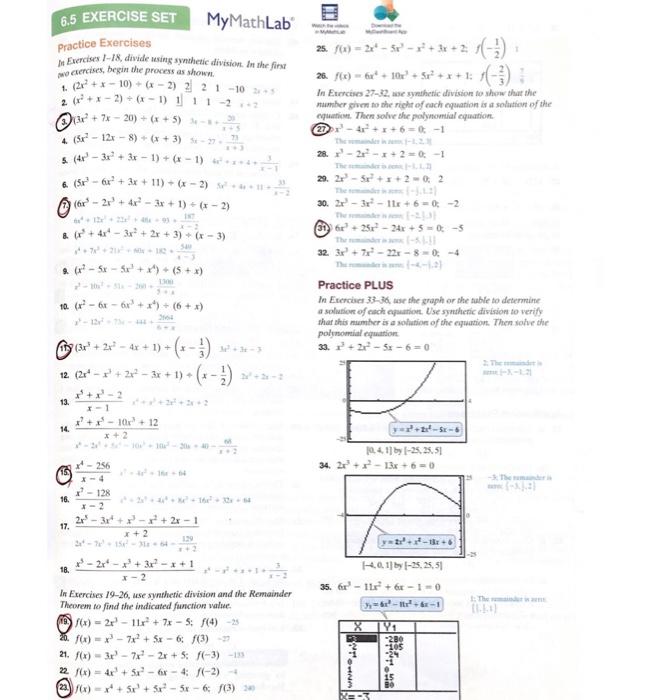 6.5 EXERCISE SET
MyMathLab®
Practice Exercises
In Exercises 1–18, divide using synthetic division. In the first
two exercises, begin the process as shown.
1. (2x² + x − 10) ÷ (x − 2) 2| 2 1 −10 2x + 5
2. (x² + x − 2) ÷ (x − 1) 1| 1 1 −2 x + 2
3. (3x² + 7x − 20) ÷ (x + 5) 3x − 8 + 20/(x + 5)
4. (5x² − 12x − 8) ÷ (x + 3) 5x − 27 + 73/(x + 3)
5. (4x³ − 3x² + 3x − 1) ÷ (x − 1) 4x² + x + 4 + 3/(x − 1)
6. (5x³ − 6x² + 3x + 11) ÷ (x − 2) 5x² + 4x + 11 + 33/(x − 2)
7. (6x⁵ − 2x³ + 4x² − 3x + 1) ÷ (x − 2)
6x⁴ + 12x³ + 22x² + 48x + 93 + 187/(x − 2)
8. (x⁵ + 4x⁴ − 3x² + 2x + 3) ÷ (x − 3)
x⁴ + 7x³ + 21x² + 60x + 182 + 549/(x − 3)
9. (x² − 5x − 5x³ + x⁴) ÷ (5 + x)
x³ − 10x² + 51x − 260 + 1300/(5 + x)
10. (x² − 6x − 6x³ + x⁴) ÷ (6 + x)
x³ − 12x² + 73x − 444 + 2664/(6 + x)
11. (3x³ + 2x² − 4x + 1) ÷ (x − 1/3) 3x² + 3x − 3
12. (2x⁴ − x³ + 2x² − 3x + 1) ÷ (x − 1/2) 2x³ + 2x − 2
13. (x⁵ + x³ − 2)/(x − 1) x⁴ + x³ + 2x² + 2x + 2
14. (x⁷ + x⁵ − 10x³ + 12)/(x + 2)
x⁶ − 2x⁵ + 5x⁴ − 10x³ + 10x² − 20x + 40 − 68/(x + 2)
15. (x⁴ − 256)/(x − 4) x³ + 4x² + 16x + 64
16. (x⁷ − 128)/(x − 2) x⁶ + 2x⁵ + 4x⁴ + 8x³ + 16x² + 32x + 64
17. (2x⁵ − 3x⁴ + x³ − x² + 2x − 1)/(x + 2)
2x⁴ − 7x³ + 15x² − 31x + 64 − 129/(x + 2)
18. (x⁵ − 2x⁴ − x³ + 3x² − x + 1)/(x − 2) x⁴ − x² + x + 1 + 3/(x − 2)
In Exercises 19–26, use synthetic division and the Remainder
Theorem to find the indicated function value.
19. f(x) = 2x³ − 11x² + 7x − 5; f(4) −25
20. f(x) = x³ − 7x² + 5x − 6; f(3) −27
21. f(x) = 3x³ − 7x² − 2x + 5; f(−3) −133
22. f(x) = 4x³ + 5x² − 6x − 4; f(−2) −4
23. f(x) = x⁴ + 5x³ + 5x² − 5x − 6; f(3) 240
25. f(x) = 2x⁴ − 5x³ − x² + 3x + 2; f(−1/2) 1
26. f(x) = 6x⁴ + 10x³ + 5x² + x + 1; f(−2/3)
In Exercises 27–32, use synthetic division to show that the
number given to the right of each equation is a solution of the
equation. Then solve the polynomial equation.
27. x³ − 4x² + x + 6 = 0; −1
The remainder is zero; {−1, 2, 3}
28. x³ − 2x² − x + 2 = 0; −1
The remainder is zero; {−1, 1, 2}
29. 2x³ − 5x² + x + 2 = 0; 2
The remainder is zero; {−1/2, 1, 2}
30. 2x³ − 3x² − 11x + 6 = 0; −2
The remainder is zero; {−2, 1/2, 3}
31. 6x³ + 25x² − 24x + 5 = 0; −5
The remainder is zero; {−5, 1/3, 1/2}
32. 3x³ + 7x² − 22x − 8 = 0; −4
The remainder is zero; {−4, −1/3, 2}
Practice PLUS
In Exercises 33–36, use the graph or the table to determine
a solution of each equation. Use synthetic division to verify
that this number is a solution of the equation. Then solve the
polynomial equation.
33. x³ + 2x² − 5x − 6 = 0
2; The remainder is
zero; {−3, −1, 2}
25
4
−25
y = x³ + 2x² − 5x − 6
[0, 4, 1] by [−25, 25, 5]
34. 2x³ + x² − 13x + 6 = 0
−3; The remainder is
zero; {−3, 1/2, 2}
25
−4
0
−25
y = 2x³ + x² − 13x + 6
[−4, 0, 1] by [−25, 25, 5]
35. 6x³ − 11x² + 6x − 1 = 0
1; The remainder is zero;
{1/3, 1/2, 1}
y₁ = 6x³ − 11x² + 6x − 1
X Y1
-3 -280
-2 -105
-1 -24
0 -1
1 0
2 15
3 80
X=-3